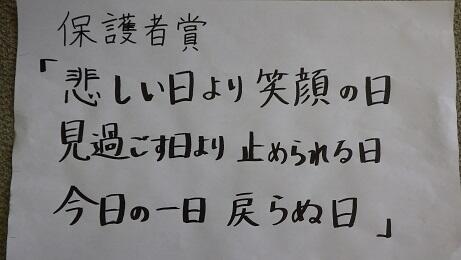 保護者賞
「悲しい日より笑顔の日
見過ごす日より 止められる日
今日の一日 戻らぬ日」